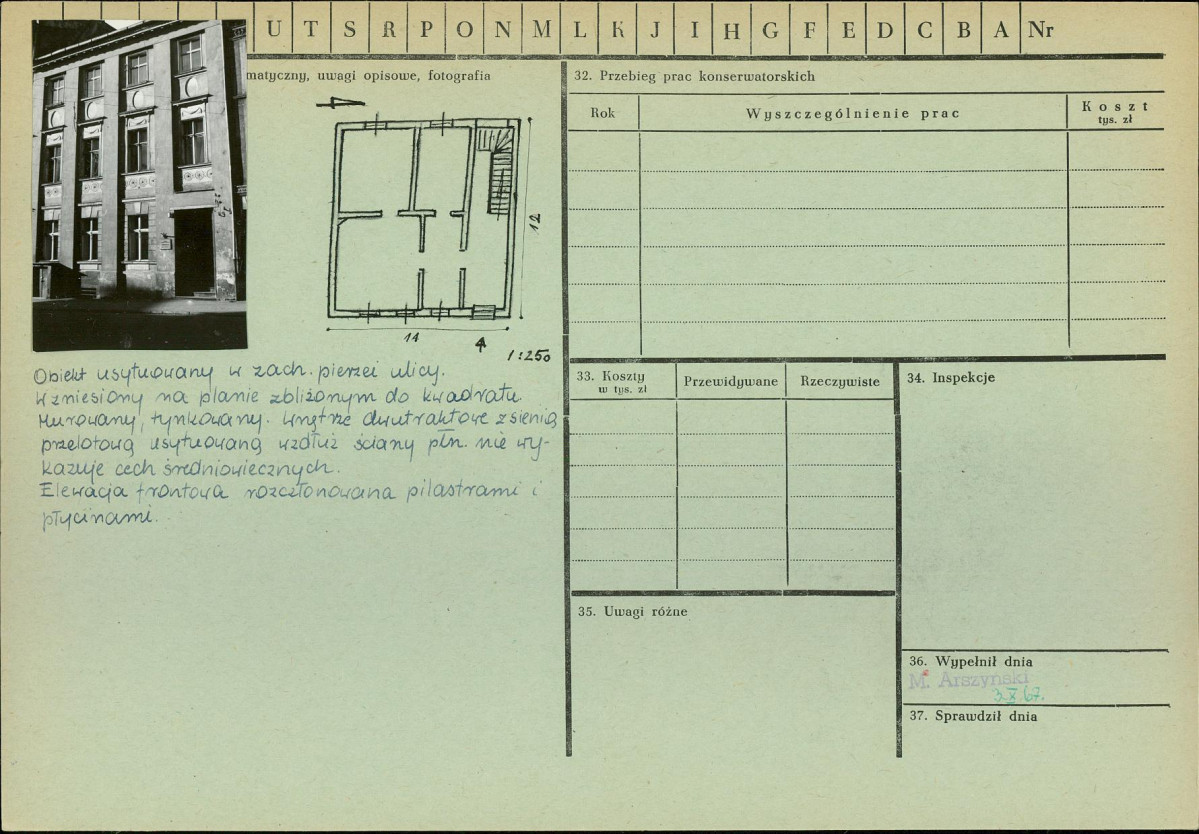 U T S R P O N M L K J I H G F E D C B A Nr
matyczny, uwagi opisowe, fotografia
12
14
1:250
Obiekt usytuowany w zach. pierzei ulicy.
Wzniesiony na planie zbliżonym do kwadratu.
Murowany, tynkowany. Wnętrze dwutraktowe z sienią
przelotową usytuowaną wzdłuż ściany płn. nie wy-
kazuje cech średniowiecznych.
Elewacja frontowa rozczłonowana pilastrami i
płycinami.
32. Przebieg prac konserwatorskich
Rok
Wyszczególnienie prac
Koszt
tys. zł
33. Koszty
w tys. zł
Przewidywane
Rzeczywiste
34. Inspekcje
35. Uwagi różne
36. Wypełnił dnia
M. Arszyński
3.X 67.
37. Sprawdził dnia